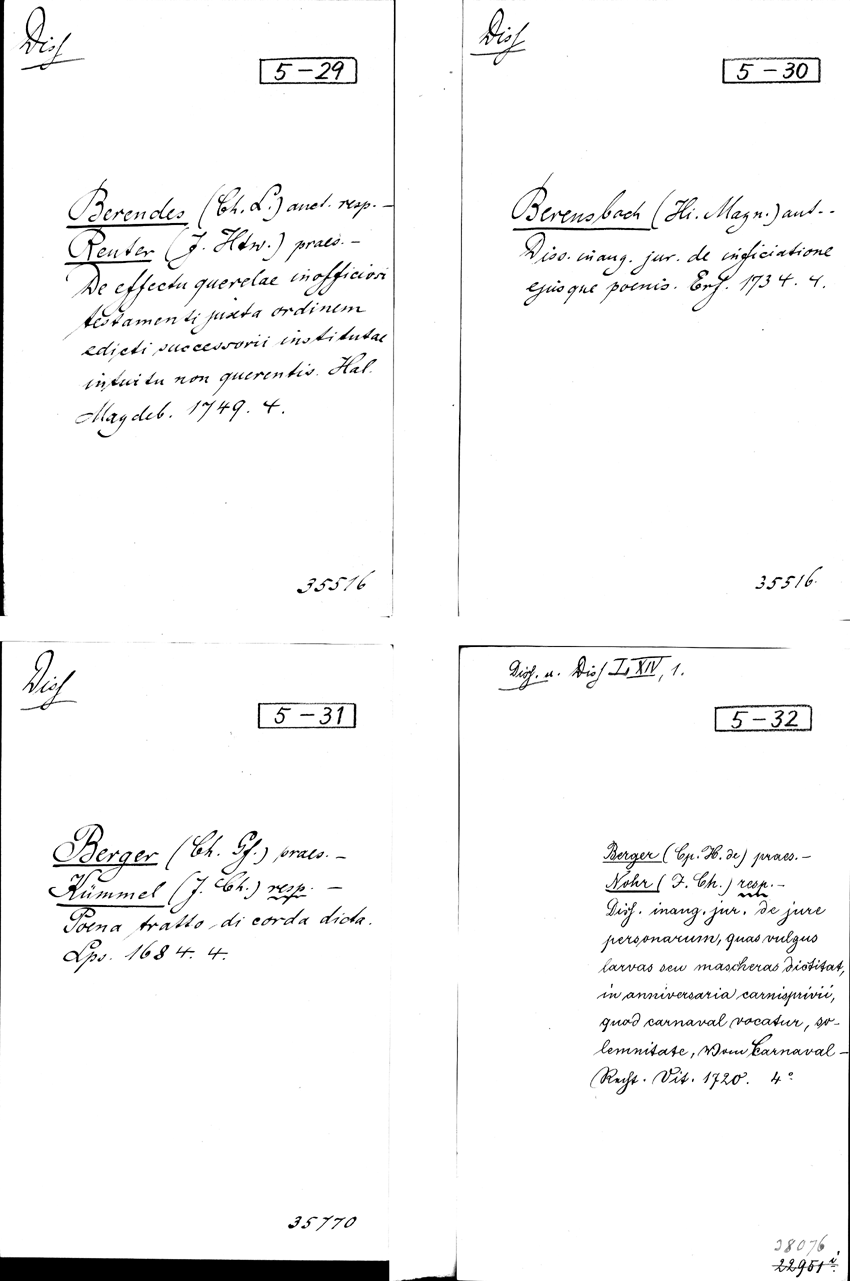 Diss
5-29
Berendes (Ch. L.) auct. resp. –
Reuter (J. Htw.) praes. –
De effectu querelae inofficiosi
testamenti juxta ordinem
edicti successorii institutae
intuitu non querentis. Hal.
Magdeb. 1749. 4.
35516
Diss
5-30
Berensbach (Hi. Magn.) aut. -
Diss. inaug. jur. de inficiatione
ejusque poenis. Erf. 1734. 4.
35516.
Diss
5-31
Berger (Ch. Gf.) praes. –
Kümmel (J. Ch.) resp. –
Poena tratto di corda dicta.
Lps. 1684. 4.
35770
Diss. u. Diss L XIV, 1.
5-32
Berger (Cp. H. de) praes. –
Nohr (J. Ch.) resp. –
Diss. inaug. jur. de jure
personarum, quas vulgus
larvas seu mascheras dictitat,
in anniversaria carnisprivii,
quod carnaval vocatur, so-
lemnitate, Vom Carnaval-
Recht. Vit. 1720. 4°
38076
22951